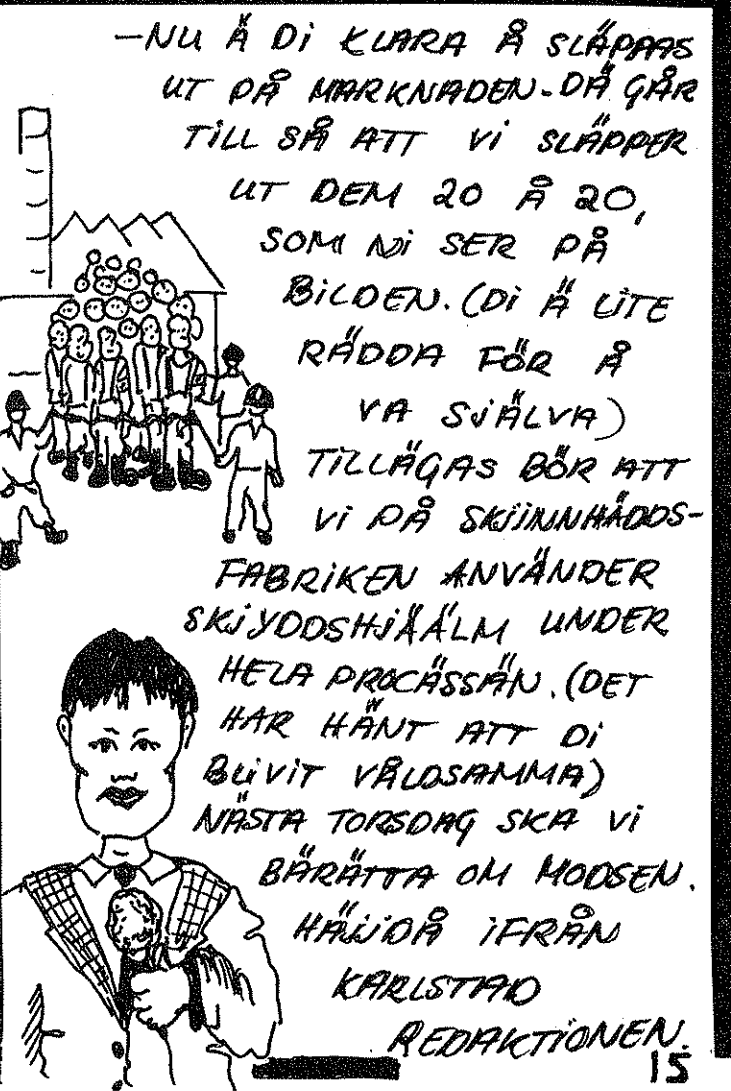 -NU Ä Di KLARA Å SLÄPPAS
UT PÅ MARKNADEN. DÄ GÅR
TiLL SÅ ATT Vi SLÄPPER
UT DEM 20 Å 20,
SOM Ni SER PÅ
BiLDEN. (Di Ä LiTE
RÄDDA FÖR Å
VA SJÄLVA)
TiLLÄGAS BÖR ATT
Vi PÅ SKJiNNHÄDDS-
FABRiKEN ANVÄNDER
SKJYDDSHJÄÄLM UNDER
HELA PROCÄSSÄN. (DET
HAR HÄNT ATT Di
BLiViT VÅLDSAMMA)
NÄSTA TORSDAG SKA Vi
BÄRÄTTA OM MODSEN.
HÄJJDÅ iFRÅN
KARLSTAD
REDAKTiONEN.
15